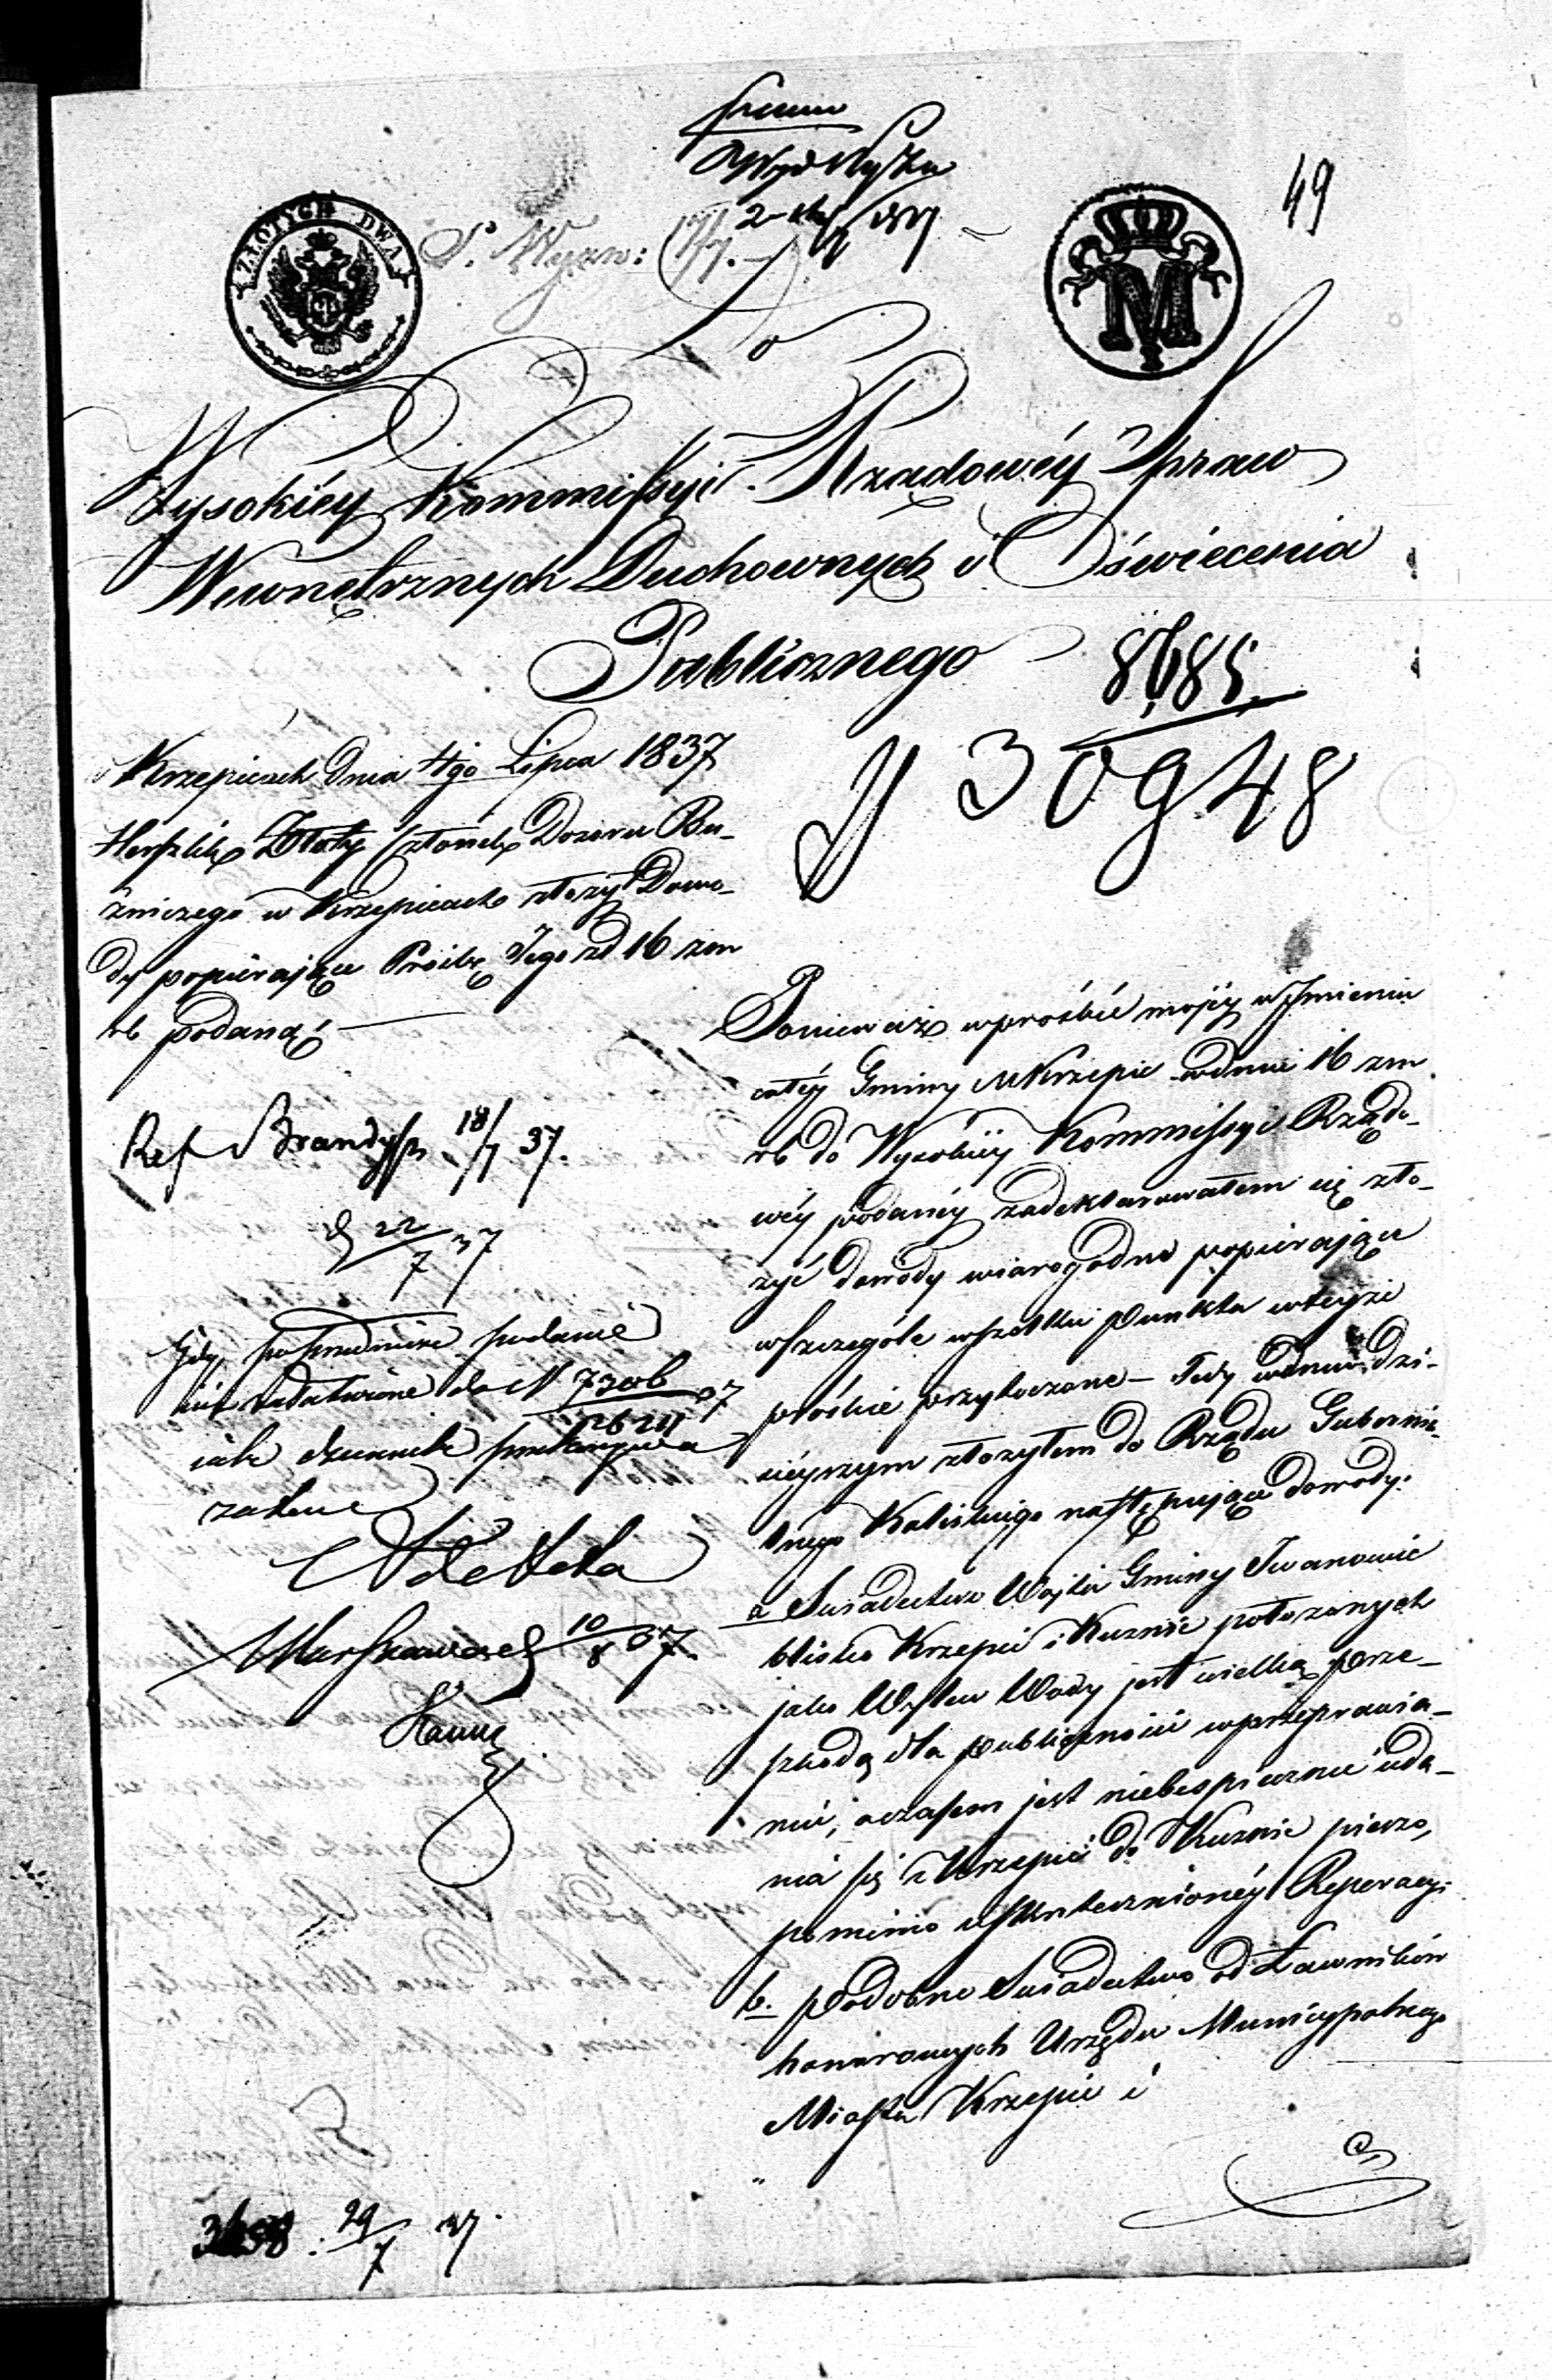 49
ZŁOTYCH DWA
M
Do
Wysokiéy Kommissyi Rządowéy Spraw
Wewnętrznych Duchownych i Oświecenia
Publicznego
8685
30948
w Krzepicach dnia 4go Lipca 1837
Herszlik Złoty Członek Dozoru Bu-
żniczego w Krzepicach złożył Dowo-
dy popierające Prośbę Jego zd 16 zm
rb podaną
Ref Brandys 18/7 37.
22/7 37
Gdy poprzednie podanie
nie załatwione do N 7306
26211 37
zatem
Ad Acta
Warszawa d 10/8 37.
Ponieważ w prośbie mojéy w Jmieniu
całéy Gminy M Krzepic wdniu 16 zm
rb do Wysokiéy Kommissyi Rządo-
wéy podanéy zadeklarowałem się zło-
żyć dowody wiarogodne popierające
w szczególe wszelkie punkta w teyże
prośbie przytoczone – Tedy w dniu dzi-
sieyszym złożyłem do Rządu Gubernia-
lnego Kaliskiego następujące dowody.
a Swiadectwo Wójta Gminy Iwanowic
blisko Krzepic i Kuznic położonych
jako Wylew Wody jest wielką prze-
szkodą dla publiczności w przeprawia-
niu, a czasem jest niebespieczne uda-
nia się z Krzepic do Kuznic pieszo,
pomimo uskutecznionéy Reperacyi
b. podobne Swiadectwo od Ławników
honorowych Urzędu Municypalnego
Miasta Krzepic i
29/7 37.